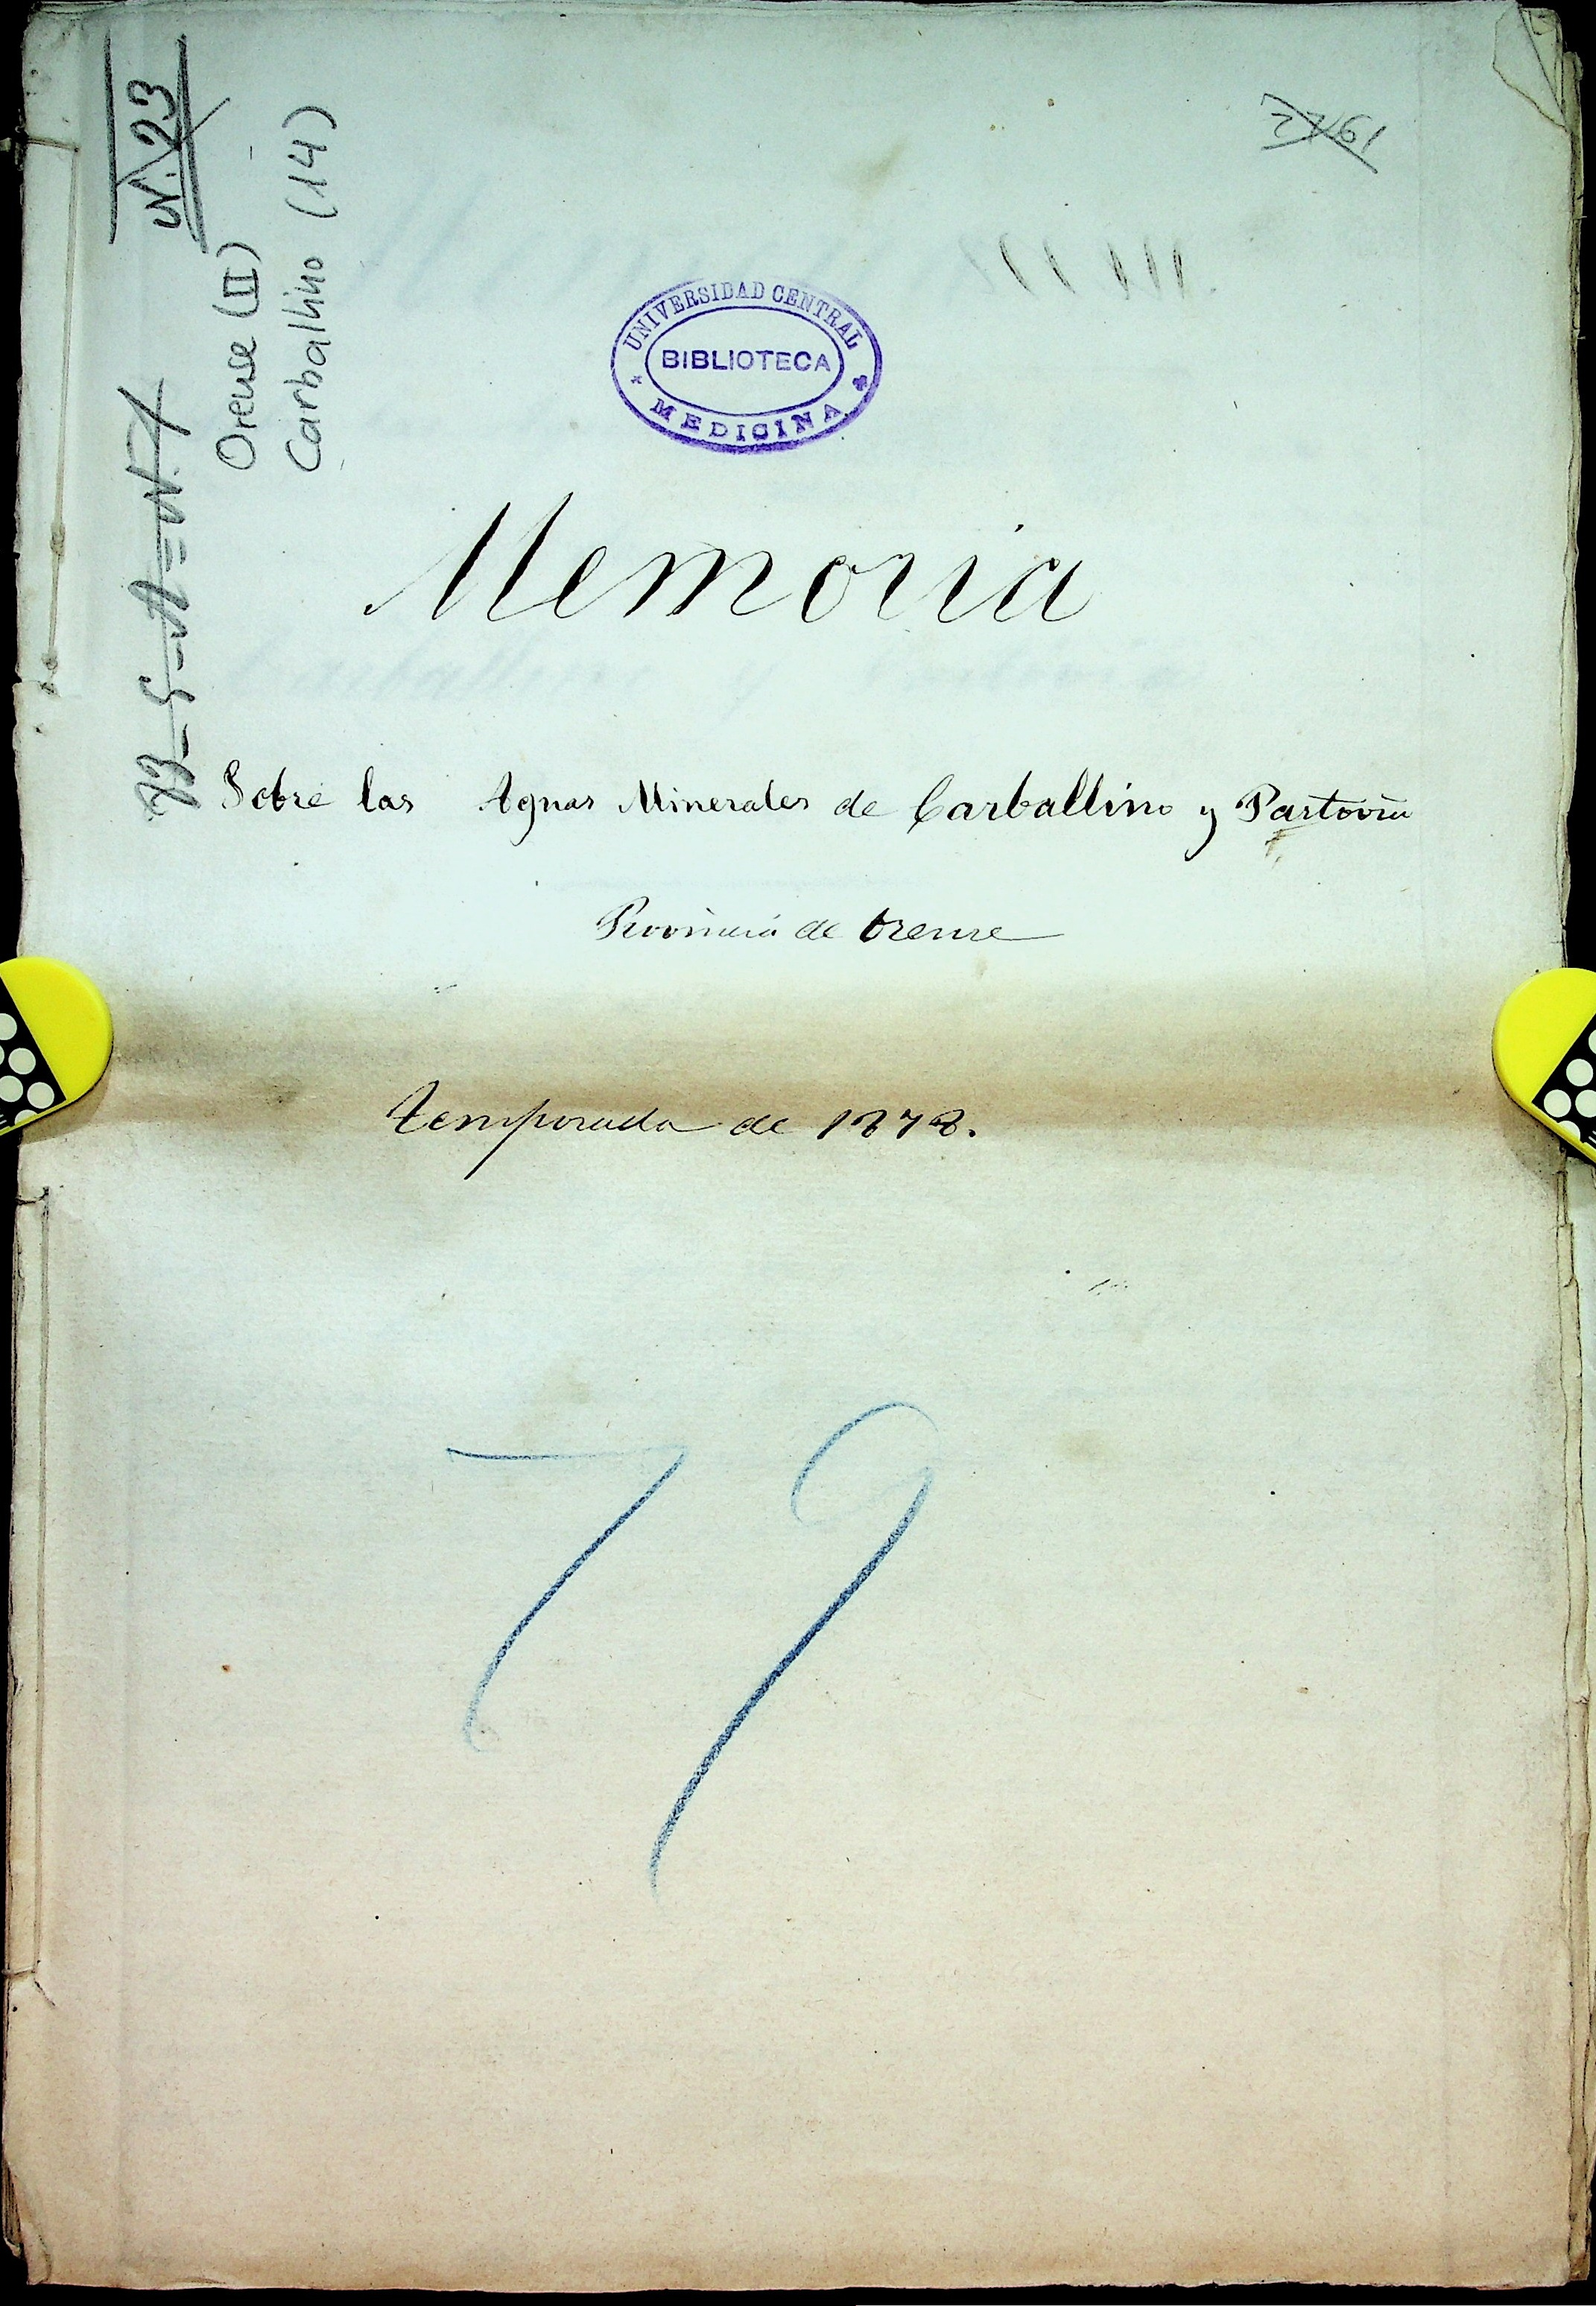 N. 23
Orense (II)
Carballino (14)
2761
UNIVERSIDAD CENTRAL
BIBLIOTECA
MEDICINA
Memoria
Sobre las Aguas Minerales de Carballino y Partovia
Provincia de Orense
temporada de 1878.
79